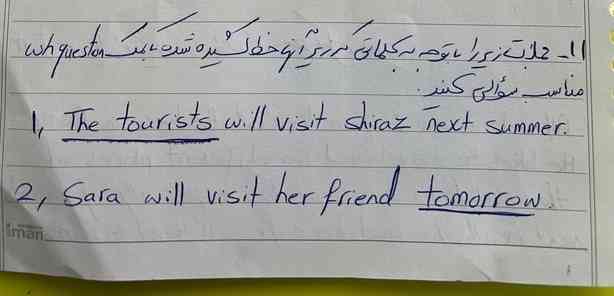 ۱۱- جملات زیر را با توجه به کلماتی که زیر آنها خط کشیده شده با کمک wh question
مناسب سؤالی کنید.
1, The tourists will visit shiraz next summer.
2, Sara will visit her friend tomorrow.
iman